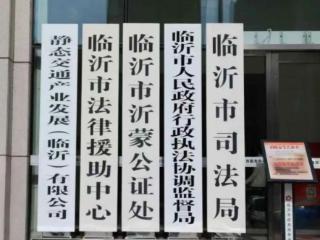 临沂市司法局
临沂市人民政府行政执法协调监督局
临沂市沂蒙公证处
临沂市法律援助中心
静态交通产业发展(临沂)有限公司